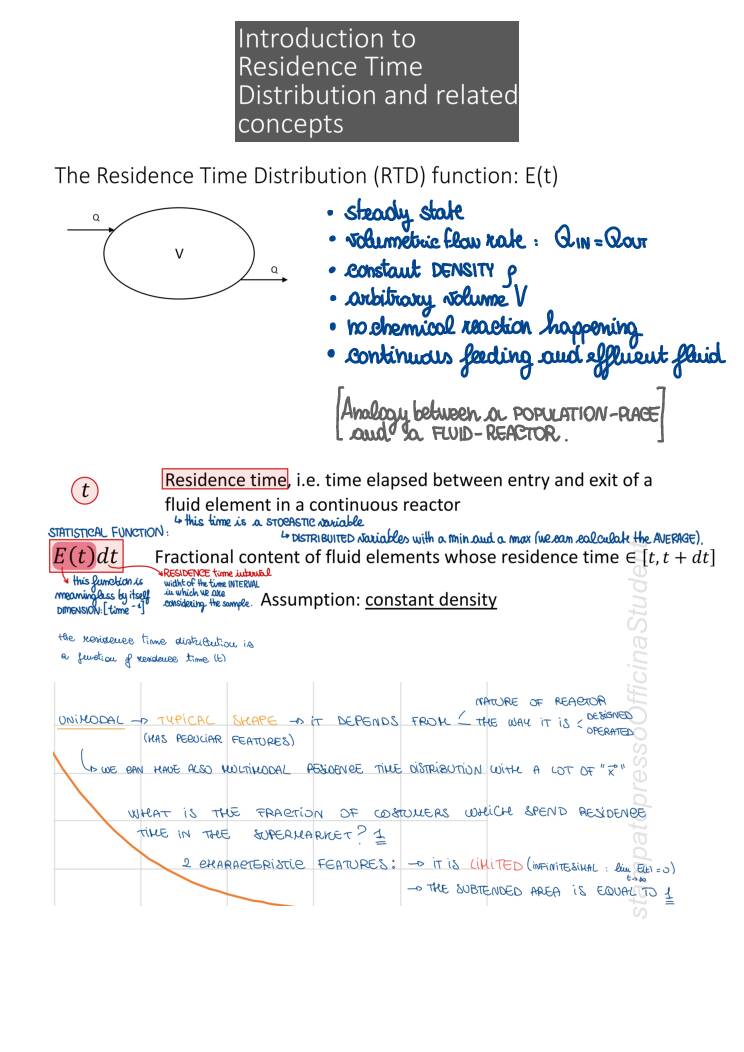 Introduction to
Residence Time
Distribution and related
concepts
The Residence Time Distribution (RTD) function: E(t)
Q
V
Q
• steady state
• volumetric flow rate : Q_IN = Q_OUT
• constant DENSITY ρ
• arbitrary volume V
• no chemical reaction happening
• continuous feeding and effluent fluid
[Analogy between a POPULATION-PLACE
and a FLUID-REACTOR.]
t
Residence time, i.e. time elapsed between entry and exit of a
fluid element in a continuous reactor
↳ this time is a STOCASTIC variable
↳ DISTRIBUITED variables with a min and a max (we can calculate the AVERAGE).
STATISTICAL FUNCTION:
E(t)dt
Fractional content of fluid elements whose residence time ∈ [t, t + dt]
this function is
meaningless by itself
DIMENSION: [time⁻¹]
RESIDENCE time interval
widht of the time INTERVAL
in which we are
considering the sample.
Assumption: constant density
the residence time distribution is
a function of residence time (t)
UNIMODAL → TYPICAL SHAPE → IT DEPENDS FROM < NATURE OF REACTOR
THE WAY IT IS < DESIGNED
OPERATED
(HAS PECULIAR FEATURES)
↳ WE CAN HAVE ALSO MULTIMODAL RESIDENCE TIME DISTRIBUTION WITH A LOT OF
WHAT IS THE FRACTION OF COSTUMERS WHICH SPEND RESIDENCE
TIME IN THE SUPERMARKET? 1
2 CHARACTERISTIC FEATURES: → IT IS LIMITED (INFINITESIMAL : lim E(t) = 0)
t→∞
→ THE SUBTENDED AREA IS EQUAL TO 1
stampato presso Officina Student